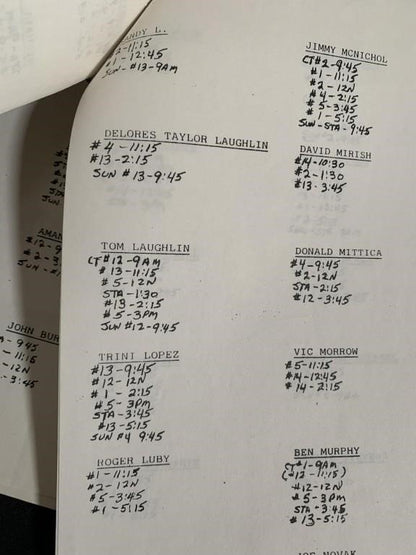 ANDY L.
2-11:15
1-12:45
SUN-#13-9AM
DELORES TAYLOR LAUGHLIN
#4-11:15
#13-2:15
SUN #13-9:45
TOM LAUGHLIN
CT#12-9AM
#13-11:15
#5-12N
STA-1:30
#13-2:15
#5-3PM
SUN #12-9:45
TRINI LOPEZ
#13-9:45
#12-12N
#1-2:15
#5-3PM
STA-3:45
#13-5:15
SUN #4 9:45
ROGER LUBY
#1-11:15
#2-12N
#5-3:45
#1-5:15
JIMMY MCNICHOL
CT#2-9:45
#1-11:15
#2-12N
#4-2:15
#5-3:45
#1-5:15
SUN-STA-9:45
DAVID MIRISH
#14-10:30
#2-1:30
#13-3:45
DONALD MITTICA
#4-9:45
#2-12N
STA-2:15
#12-3:45
VIC MORROW
#5-11:15
#14-12:45
#14-2:15
BEN MURPHY
CT#1-9AM
(#12-11:15)
#12-12N
#5-3PM
STA-3:45
#13-5:15
JOE NOVAK
AMAN
#12-9
#2-
SUN-#1
JOHN BUR
-9:45
-11:15
-12N
-3:45